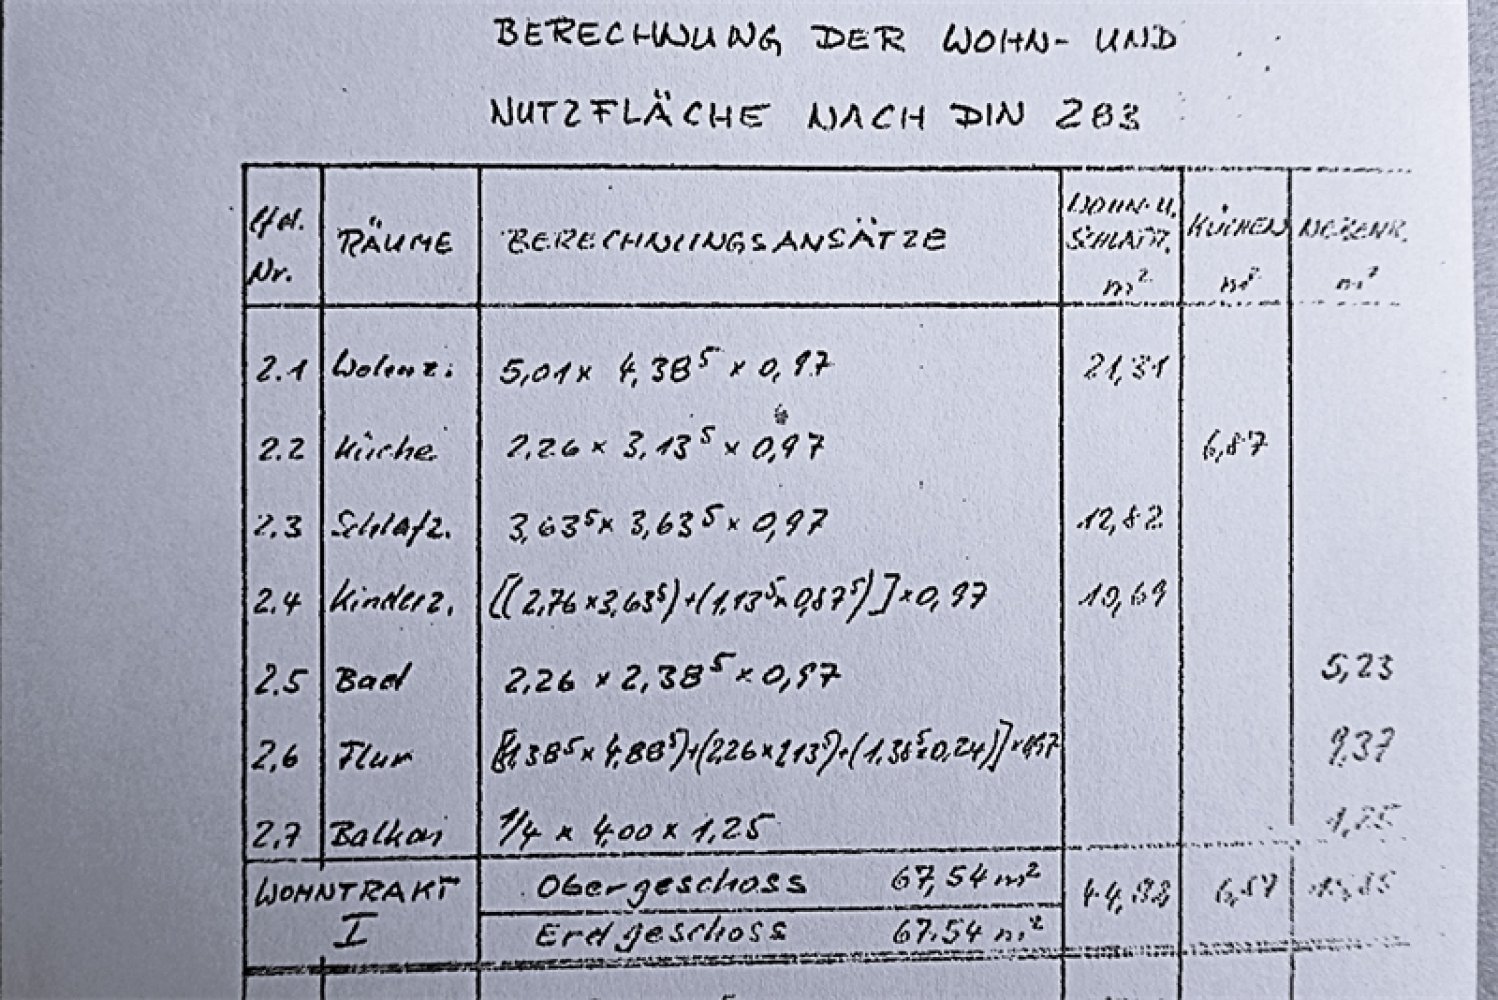 BERECHNUNG DER WOHN- UND
NUTZFLÄCHE NACH DIN 283
lfd. Nr. RÄUME BERECHNUNGSANSÄTZE WOHN- U. SCHLAFR. m² KÜCHEN m² NEBENR. m²
2.1 Wohnz. 5,01 x 4,38⁵ x 0,97 21,31
2.2 Küche 2,26 x 3,13⁵ x 0,97 6,87
2.3 Schlafz. 3,63⁵ x 3,63⁵ x 0,97 12,82
2.4 Kinderz. [(2,76 x 3,63⁵)+(1,13⁵ x 0,87⁵)] x 0,97 10,69
2.5 Bad 2,26 x 2,38⁵ x 0,97 5,23
2.6 Flur [(1,38⁵ x 4,88⁵)+(2,26 x 1,13⁵)+(1,36⁵ x 0,24)] x 0,97 9,37
2.7 Balkon 1/4 x 4,00 x 1,25 1,25
WOHNTRAKT I Obergeschoss 67,54 m² 44,82 6,87
Erdgeschoss 67.54 m²